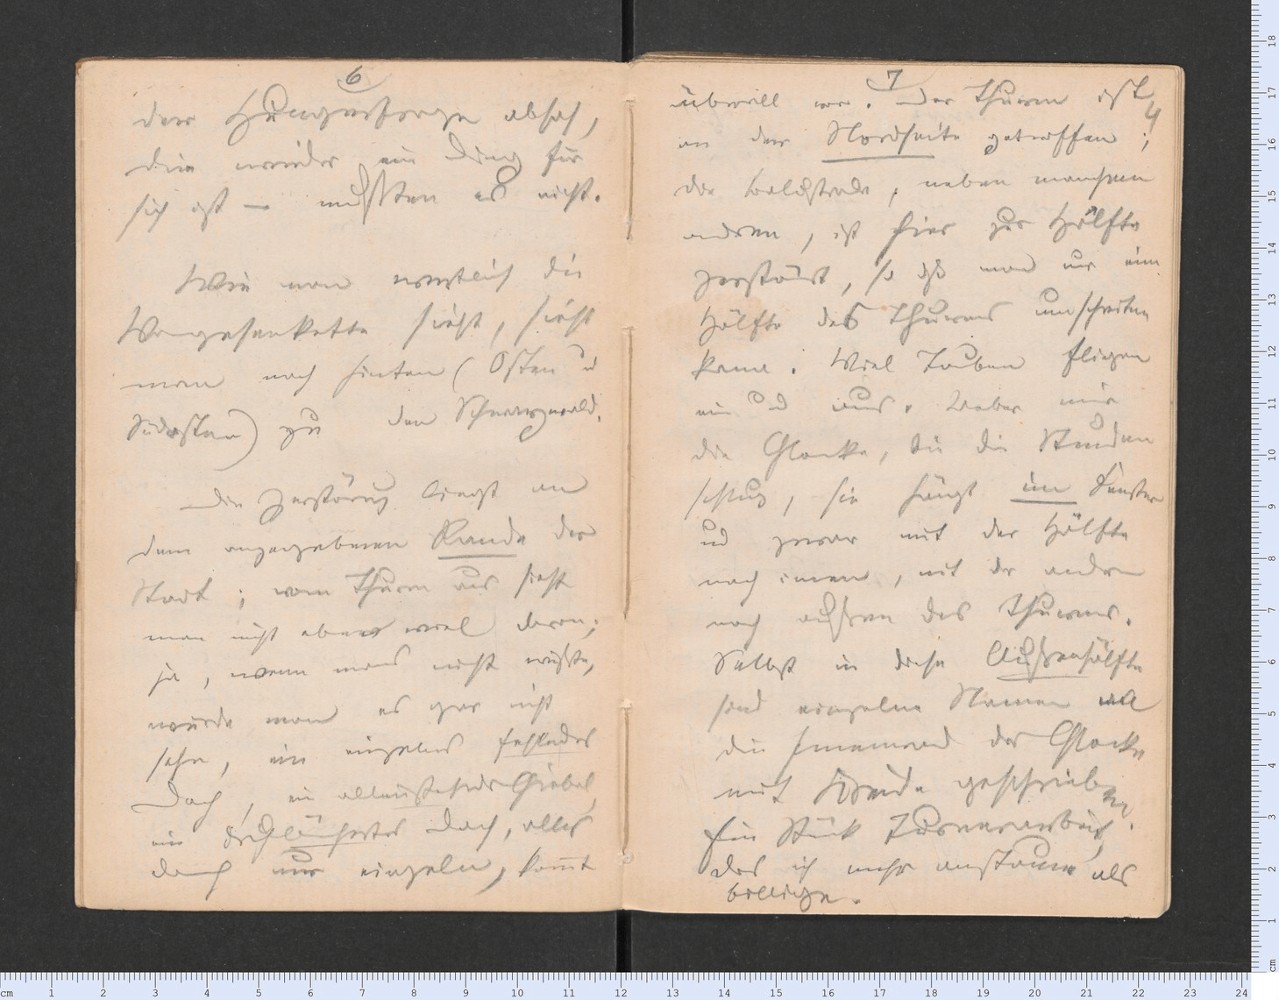 6
der Hungersorge absah,
die wieder ein Ding für
sich ist — mußten es nicht.
Wie man westlich die
Vogesenkette sieht, sieht
man nach hinten (Osten u
Südosten) zu den Schwarzwald.
Die Zerstörung liegt an
dem angegebenen Rande der
Stadt; vom Thurm aus sieht
man nicht eben viel davon;
ja, wenn mans nicht wüßte,
würde man es gar nicht
sehn, ein einzelnes fehlendes
Dach, ein alleinstehender Giebel,
ein durchlöchertes Dach, alles
doch nur einzeln, kommt
7
4
überall vor. Der Thurm ist
an der Nordseite getroffen;
die Balustrade, neben manchem
andren, ist hier zur Hälfte
zerstört, so daß man nur eine
Hälfte des Thurms umschreiten
kann. Viel Tauben fliegen
ein und aus. Ueber mir
die Glocke, die die Stunden
schlug, sie hängt im Fenster
und zwar mit der Hälfte
nach innen, mit der andren
nach außen des Thurms.
Selbst in diese Außenhälfte
sind einzelne Namen an
die Innenwand der Glocke
mit Kreide geschrieben.
Ein Stück Turnerarbeit,
das ich mehr anstaune als
billige.